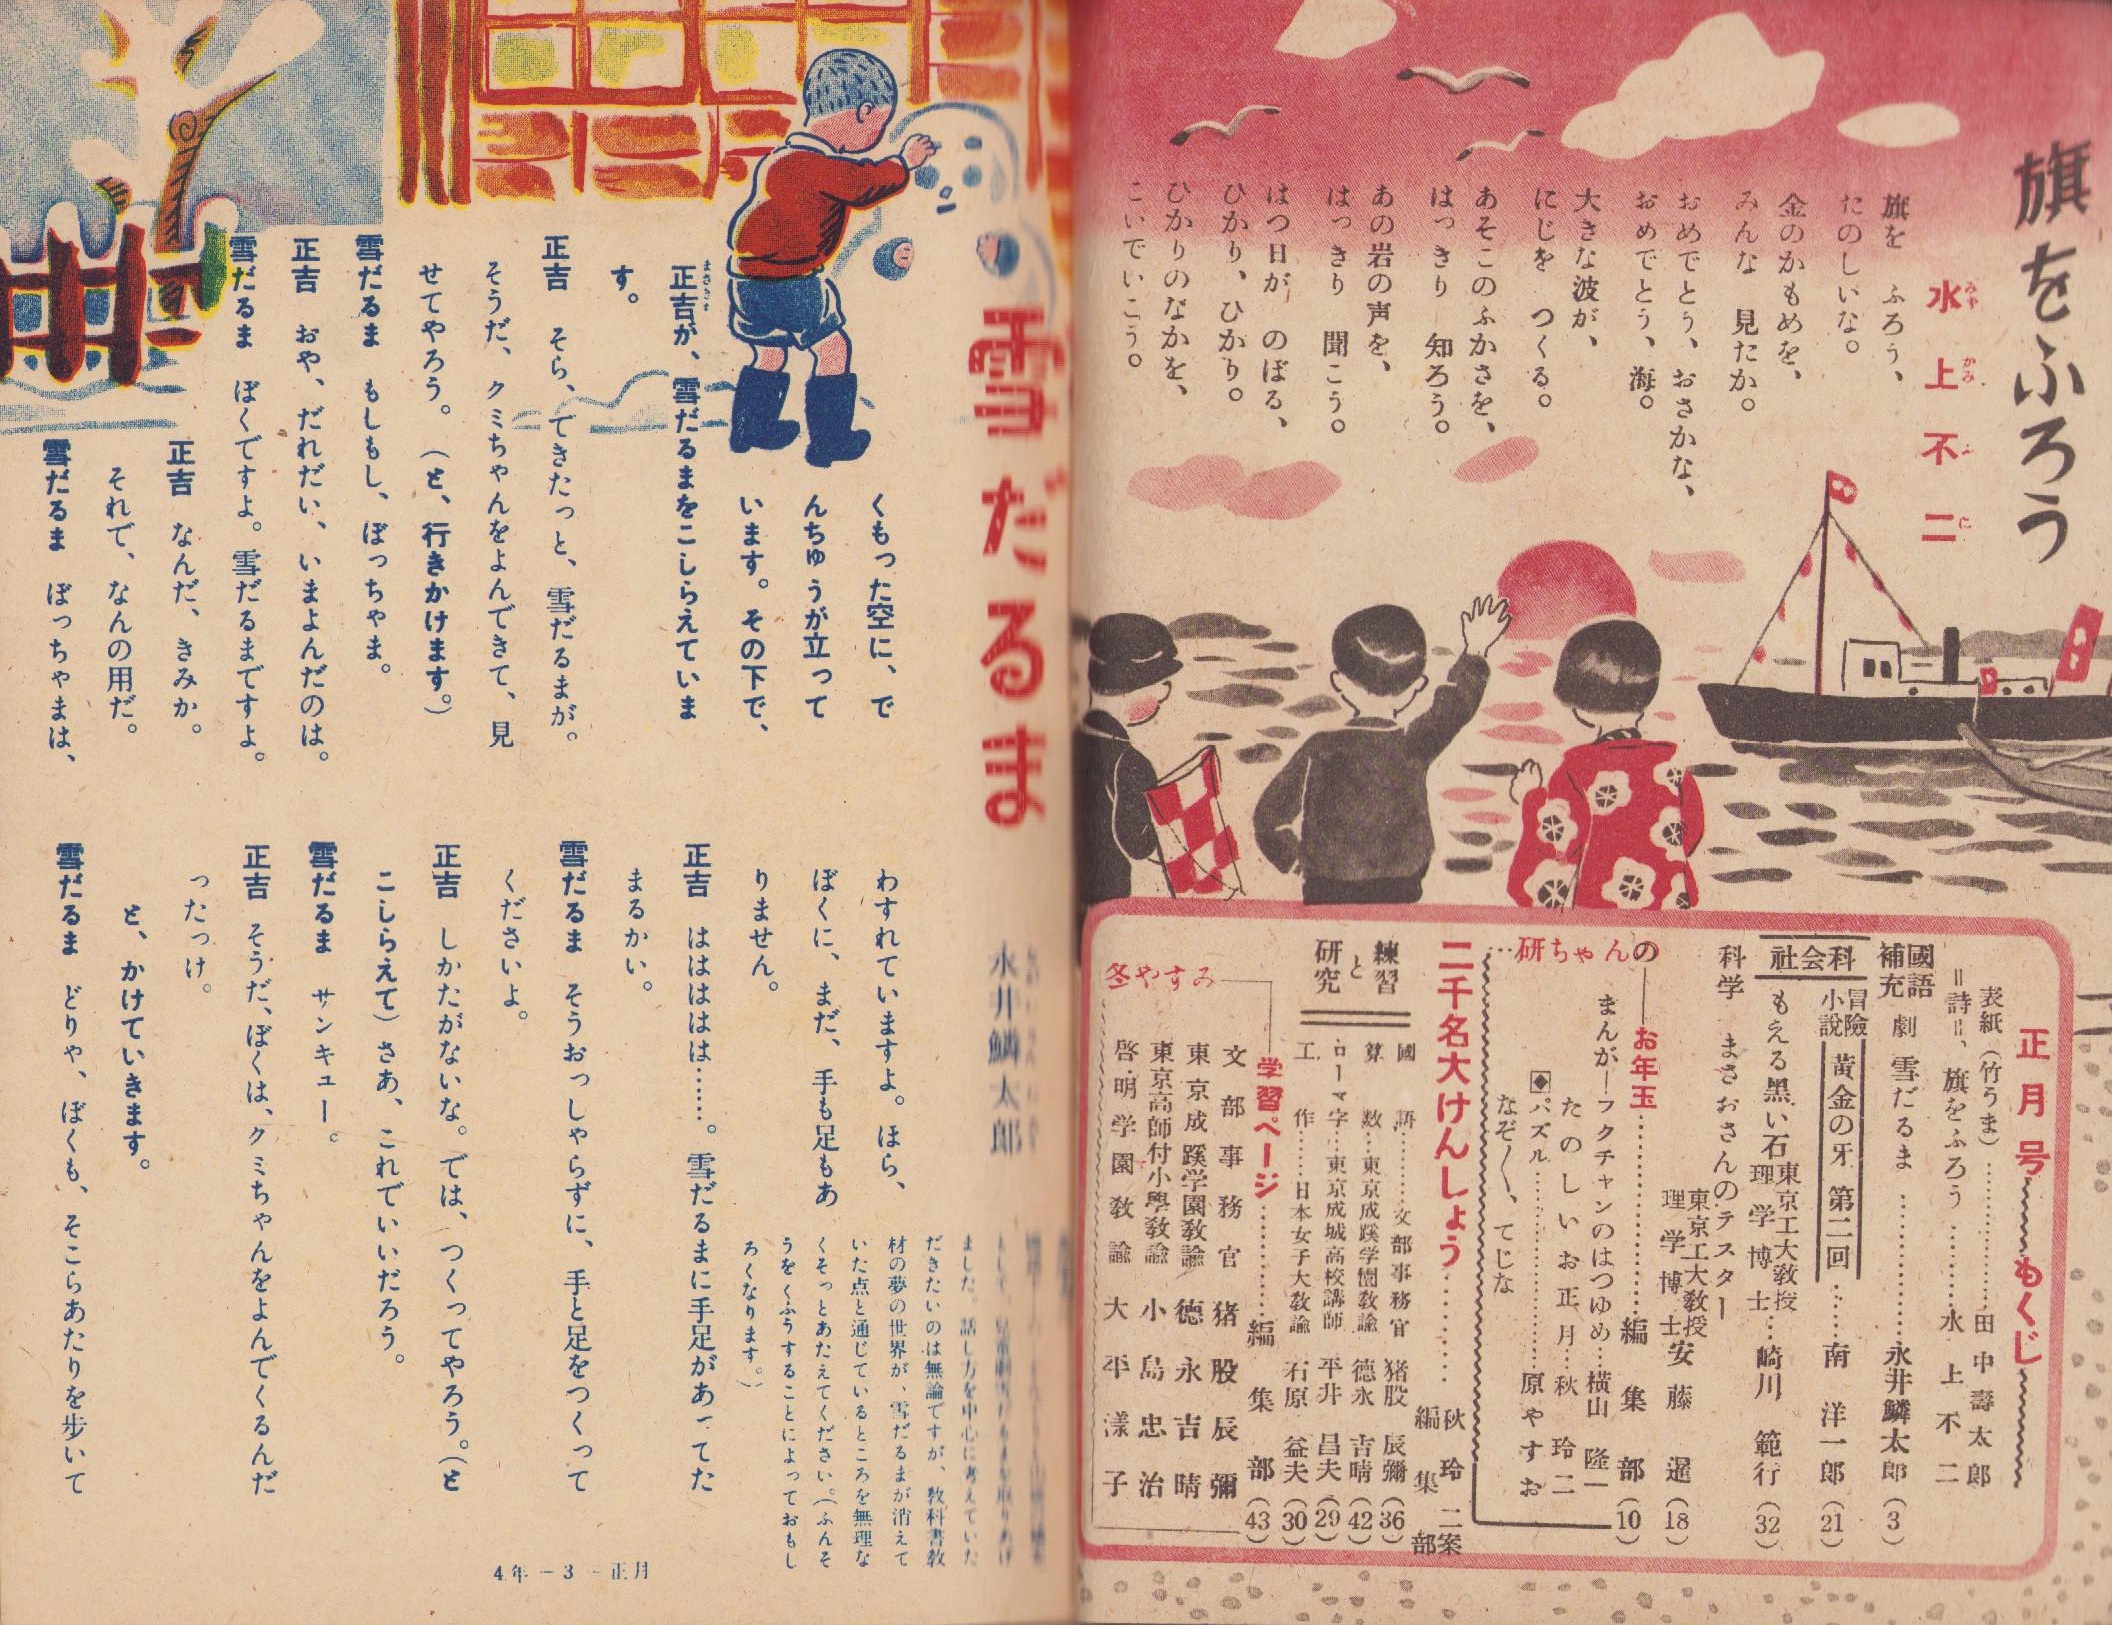 旗をふろう
水上不二
みずかみふじ
旗を　ふろう、
たのしいな。
金のかもめを、
みんな　見たか。
おめでとう、おさかな、
おめでとう、海。
大きな波が、
にじを　つくる。
あそこのふかさを、
はっきり　知ろう。
あの岩の声を、
はっきり　聞こう。
はつ日が　のぼる、
ひかり、ひかり。
ひかりのなかを、
こいでいこう。
正月号もくじ
表紙（竹うま）……田中壽太郎
＝詩＝、旗をふろう……水上不二
國語補充　劇　雪だるま……永井鱗太郎（3）
社会科　冒險小說　黃金の牙　第二回……南洋一郎（21）
もえる黒い石　東京工大教授理学博士…崎川範行（32）
科学　まさおさんのテスター　東京工大教授理学博士　安藤暹（18）
研ちゃんのお年玉……編集部（10）
まんが―フクチャンのはつゆめ…横山隆一
たのしいお正月…秋玲二
◆パズル……原やすお
なぞ〳〵、てじな
二千名大けんしょう……秋玲二案　編集部
練習と研究
國語……文部事務官　猪股辰彌（36）
算数…東京成蹊学園教諭　德永吉晴（42）
ローマ字…東京成城高校講師　平井昌夫（29）
工作……日本女子大教諭　石原益夫（30）
冬やすみ学習ページ……編集部（43）
文部事務官　猪股辰彌
東京成蹊学園教諭　德永吉晴
東京高師付小學教諭　小島忠治
啓明学園教諭　大平漾子
雪だるま
永井鱗太郎
くもった空に、で
んちゅうが立って
います。その下で、
正吉が、雪だるまをこしらえていま
す。
正吉　そら、できたっと、雪だるまが。
そうだ、クミちゃんをよんできて、見
せてやろう。（と、行きかけます。）
雪だるま　もしもし、ぼっちゃま。
正吉　おや、だれだい、いまよんだのは。
雪だるま　ぼくですよ。雪だるまですよ。
正吉　なんだ、きみか。
それで、なんの用だ。
雪だるま　ぼっちゃまは、
わすれていますよ。ほら、
ぼくに、まだ、手も足もあ
りません。
正吉　はははは……。雪だるまに手足があってた
まるかい。
雪だるま　そうおっしゃらずに、手と足をつくって
くださいよ。
正吉　しかたがないな。では、つくってやろう。（と
こしらえて）さあ、これでいいだろう。
雪だるま　サンキュー。
正吉　そうだ、ぼくは、クミちゃんをよんでくるんだ
ったっけ。
と、かけていきます。
雪だるま　どりゃ、ぼくも、そこらあたりを歩いて
ました。話し方を中心に考えていた
だきたいのは無論ですが、教科書教
材の夢の世界が、雪だるまが消えて
いた点と通じているところを無理な
くそっとあたえてください。（ふんそ
うをくふうすることによっておもし
ろくなります。）
4年－3－正月